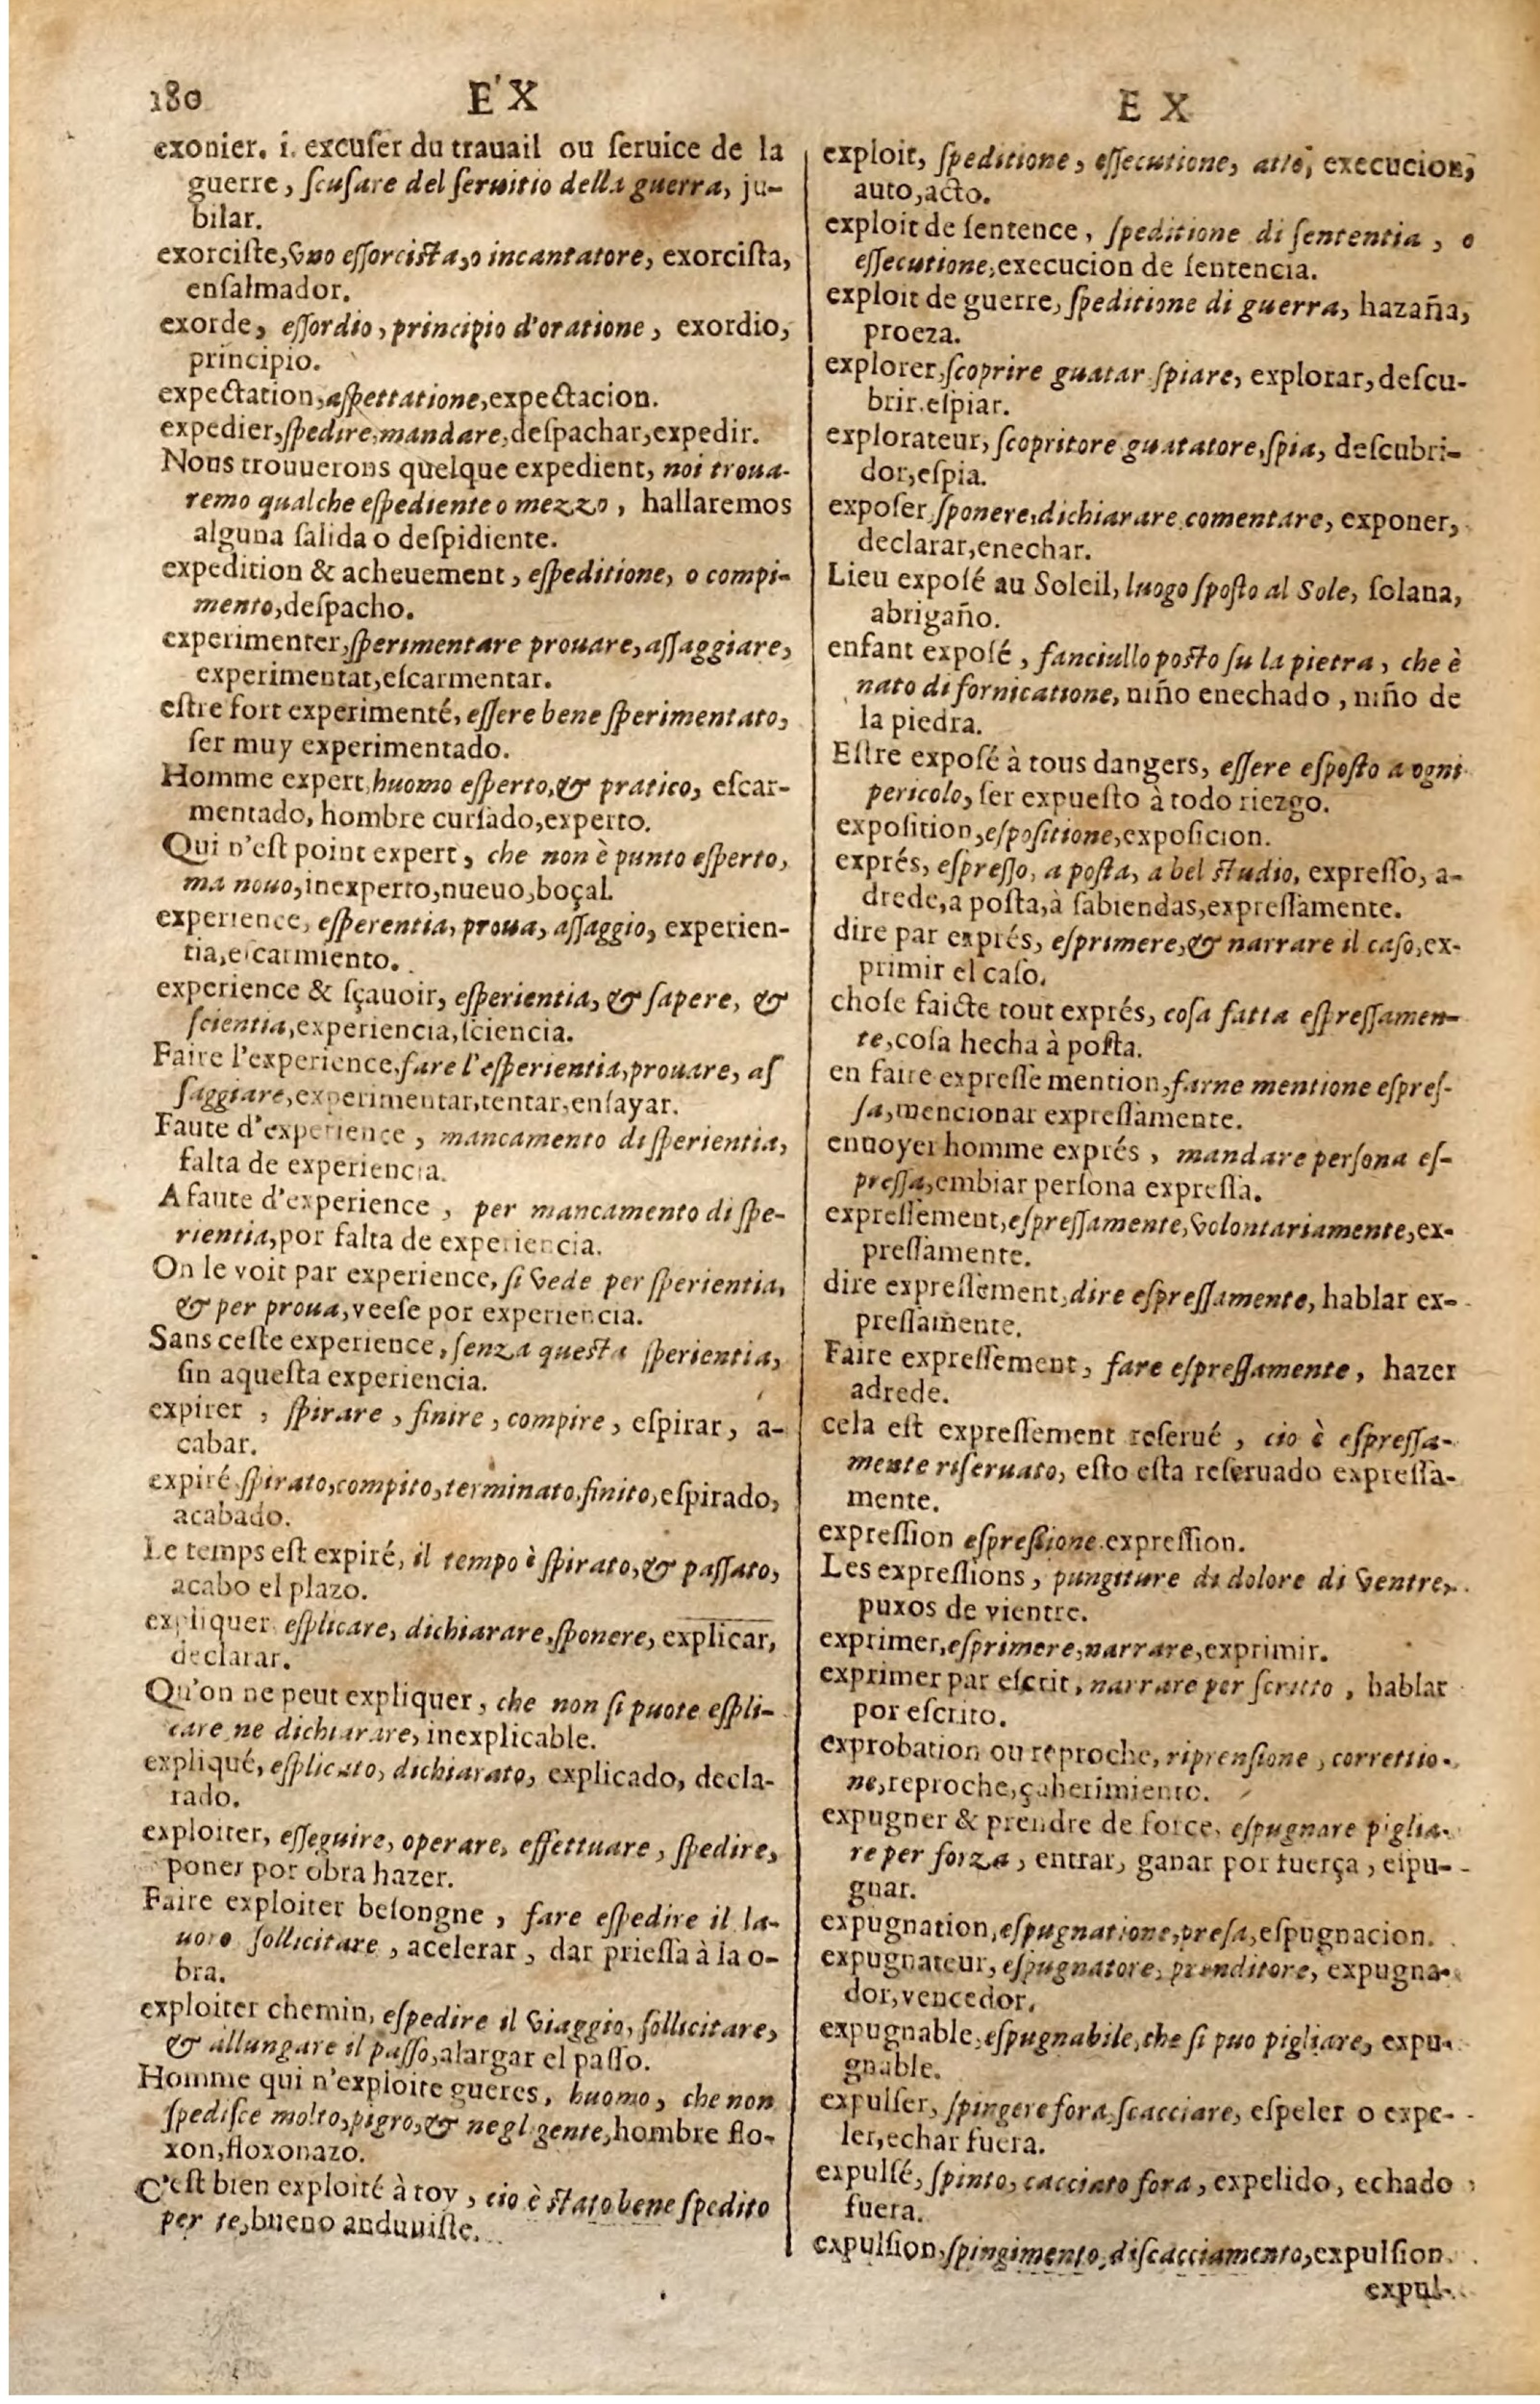 180 E'X
exonier. i. excuſer du trauail ou ſeruice de la
guerre, ſcuſare del ſeruitio della guerra, ju-
bilar.
exorciſte, vno eſſorciſta, o incantatore, exorciſta,
enſalmador.
exorde, eſſordio, principio d'oratione, exordio,
principio.
expectation, aſpettatione, expectacion.
expedier, ſpedire, mandare, deſpachar, expedir.
Nous trouuerons quelque expedient, noi troua-
remo qualche eſpediente o mezzo, hallaremos
alguna ſalida o deſpidiente.
expedition & acheuement, eſpeditione, o compi-
mento, deſpacho.
experimenter, ſperimentare prouare, aſſaggiare,
experimentat, eſcarmentar.
eſtre fort experimenté, eſſere bene ſperimentato,
ſer muy experimentado.
Homme expert, huomo eſperto, & pratico, eſcar-
mentado, hombre curſado, experto.
Qui n'eſt point expert, che non è punto eſperto,
ma nouo, inexperto, nueuo, boçal.
experience, eſperentia, proua, aſſaggio, experien-
tia, eſcarmiento.
experience & sçauoir, eſperientia, & ſapere, &
ſcientia, experiencia, ſciencia.
Faire l'experience, fare l'eſperientia, prouare, aſ
ſaggiare, experimentar, tentar, enſayar.
Faute d'experience, mancamento di ſperientia,
falta de experiencia.
A faute d'experience, per mancamento di ſpe-
rientia, por falta de experiencia.
On le voit par experience, ſi vede per ſperientia,
& per proua, veeſe por experiencia.
Sans ceſte experience, ſenza queſta ſperientia,
ſin aqueſta experiencia.
expirer, ſpirare, finire, compire, eſpirar, a-
cabar.
expiré ſpirato, compito, terminato, finito, eſpirado,
acabado.
Le temps eſt expiré, il tempo è ſpirato, & paſſato,
acabo el plazo.
expliquer, eſplicare, dichiarare, ſponere, explicar,
declarar.
Qu'on ne peut expliquer, che non ſi puote eſpli-
care ne dichiarare, inexplicable.
expliqué, eſplicato, dichiarato, explicado, decla-
rado.
exploiter, eſſeguire, operare, effettuare, ſpedire,
poner por obra hazer.
Faire exploiter beſongne, fare eſpedire il la-
uoro ſollicitare, acelerar, dar prieſſa à la o-
bra.
exploiter chemin, eſpedire il viaggio, ſollicitare,
& allungare il paſſo, alargar el paſſo.
Homme qui n'exploite gueres, huomo, che non
ſpediſce molto, pigro, & negligente, hombre flo-
xon, floxonazo.
C'eſt bien exploité à toy, cio è ſtato bene ſpedito
per te, bueno anduuiſte.
E X
exploit, ſpeditione, eſſecutione, atto, execucion,
auto, acto.
exploit de ſentence, ſpeditione di ſententia, o
eſſecutione, execucion de ſentencia.
exploit de guerre, ſpeditione di guerra, hazaña,
proeza.
explorer, ſcoprire guatar ſpiare, explorar, deſcu-
brir, eſpiar.
explorateur, ſcopritore guatatore, ſpia, deſcubri-
dor, eſpia.
expoſer ſponere, dichiarare comentare, exponer,
declarar, enechar.
Lieu expoſé au Soleil, luogo ſpoſto al Sole, ſolana,
abrigaño.
enfant expoſé, fanciullo poſto ſu la pietra, che è
nato di fornicatione, niño enechado, niño de
la piedra.
Eſtre expoſé à tous dangers, eſſere eſpoſto a ogni
pericolo, ſer expueſto à todo riezgo.
expoſition, eſpoſitione, expoſicion.
exprés, eſpreſſo, a poſta, a bel ſtudio, expreſſo, a-
drede, a poſta, à ſabiendas, expreſſamente.
dire par exprés, eſprimere, & narrare il caſo, ex-
primir el caſo.
choſe faicte tout exprés, coſa fatta eſpreſſamen-
te, coſa hecha à poſta.
en faire expreſſe mention, farne mentione eſpreſ-
ſa, mencionar expreſſamente.
enuoyer homme exprés, mandare perſona eſ-
preſſa, embiar perſona expreſſa.
expreſſement, eſpreſſamente, volontariamente, ex-
preſſamente.
dire expreſſement, dire eſpreſſamente, hablar ex-
preſſamente.
Faire expreſſement, fare eſpreſſamente, hazer
adrede.
cela eſt expreſſement reſerué, cio è eſpreſſa-
mente riſeruato, eſto eſta reſeruado expreſſa-
mente.
expreſſion eſpreſſione expreſſion.
Les expreſſions, pungiture di dolore di ventre,
puxos de vientre.
exprimer, eſprimere, narrare, exprimir.
exprimer par eſcrit, narrare per ſcritto, hablar
por eſcrito.
exprobation ou reproche, riprenſione, correttio-
ne, reproche, çaherimiento.
expugner & prendre de force, eſpugnare piglia-
re per forza, entrar, ganar por fuerça, eſpu-
gnar.
expugnation, eſpugnatione, preſa, eſpugnacion.
expugnateur, eſpugnatore, prenditore, expugna-
dor, vencedor.
expugnable, eſpugnabile, che ſi puo pigliare, expu-
gnable.
expulſer, ſpingere fora, ſcacciare, eſpeler o expe-
ler, echar fuera.
expulſé, ſpinto, cacciato fora, expelido, echado
fuera.
expulſion, ſpingimento, diſcacciamento, expulſion.
expul-